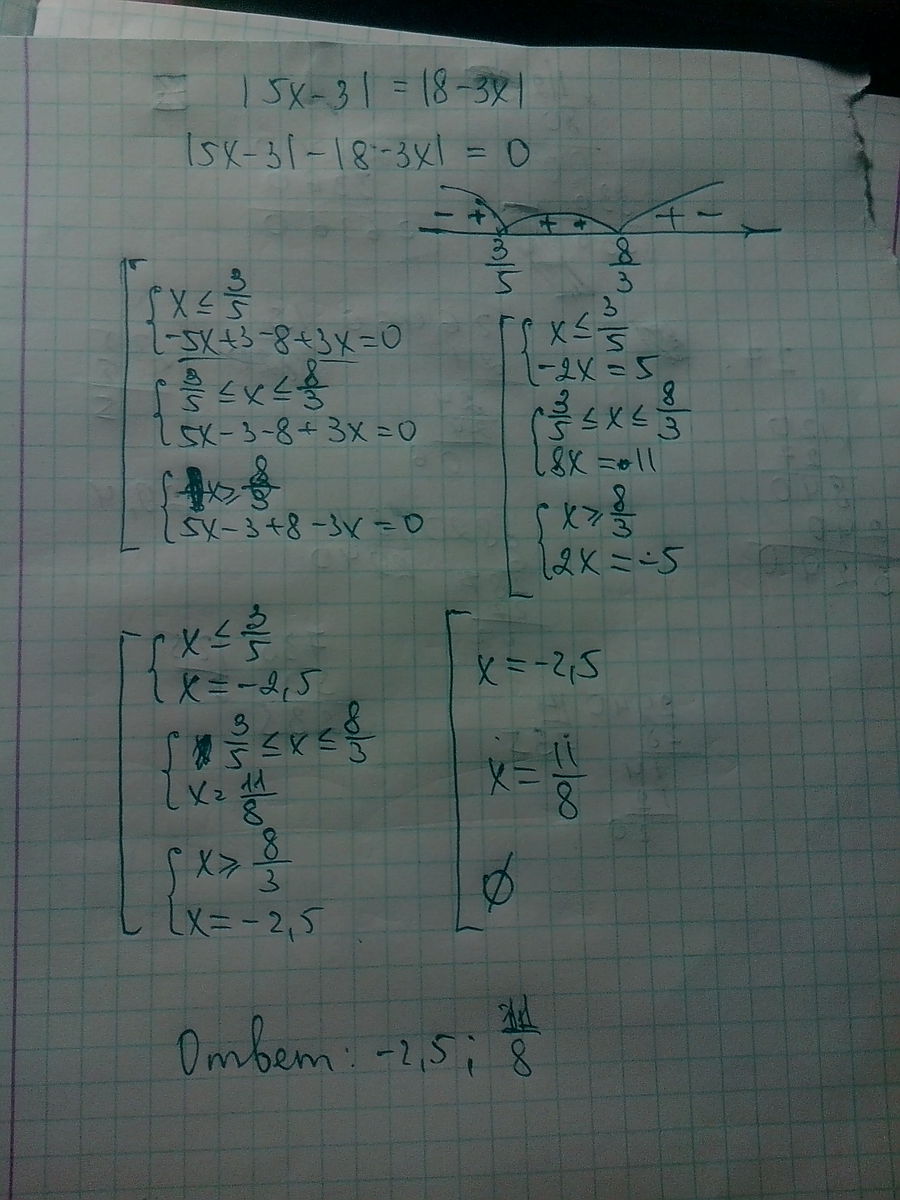 |5x-3| = |8-3x|
|5x-3|-|8-3x| = 0
- + + + + -
3/5 8/3
x ≤ 3/5
-5x+3-8+3x=0
3/5 ≤ x ≤ 8/3
5x-3-8+3x=0
x ≥ 8/3
5x-3+8-3x=0
x ≤ 3/5
-2x = 5
3/5 ≤ x ≤ 8/3
8x = 11
x ≥ 8/3
2x = -5
x ≤ 3/5
x = -2,5
3/5 ≤ x ≤ 8/3
x = 11/8
x ≥ 8/3
x = -2,5
x = -2,5
x = 11/8
∅
Ответ: -2,5; 11/8